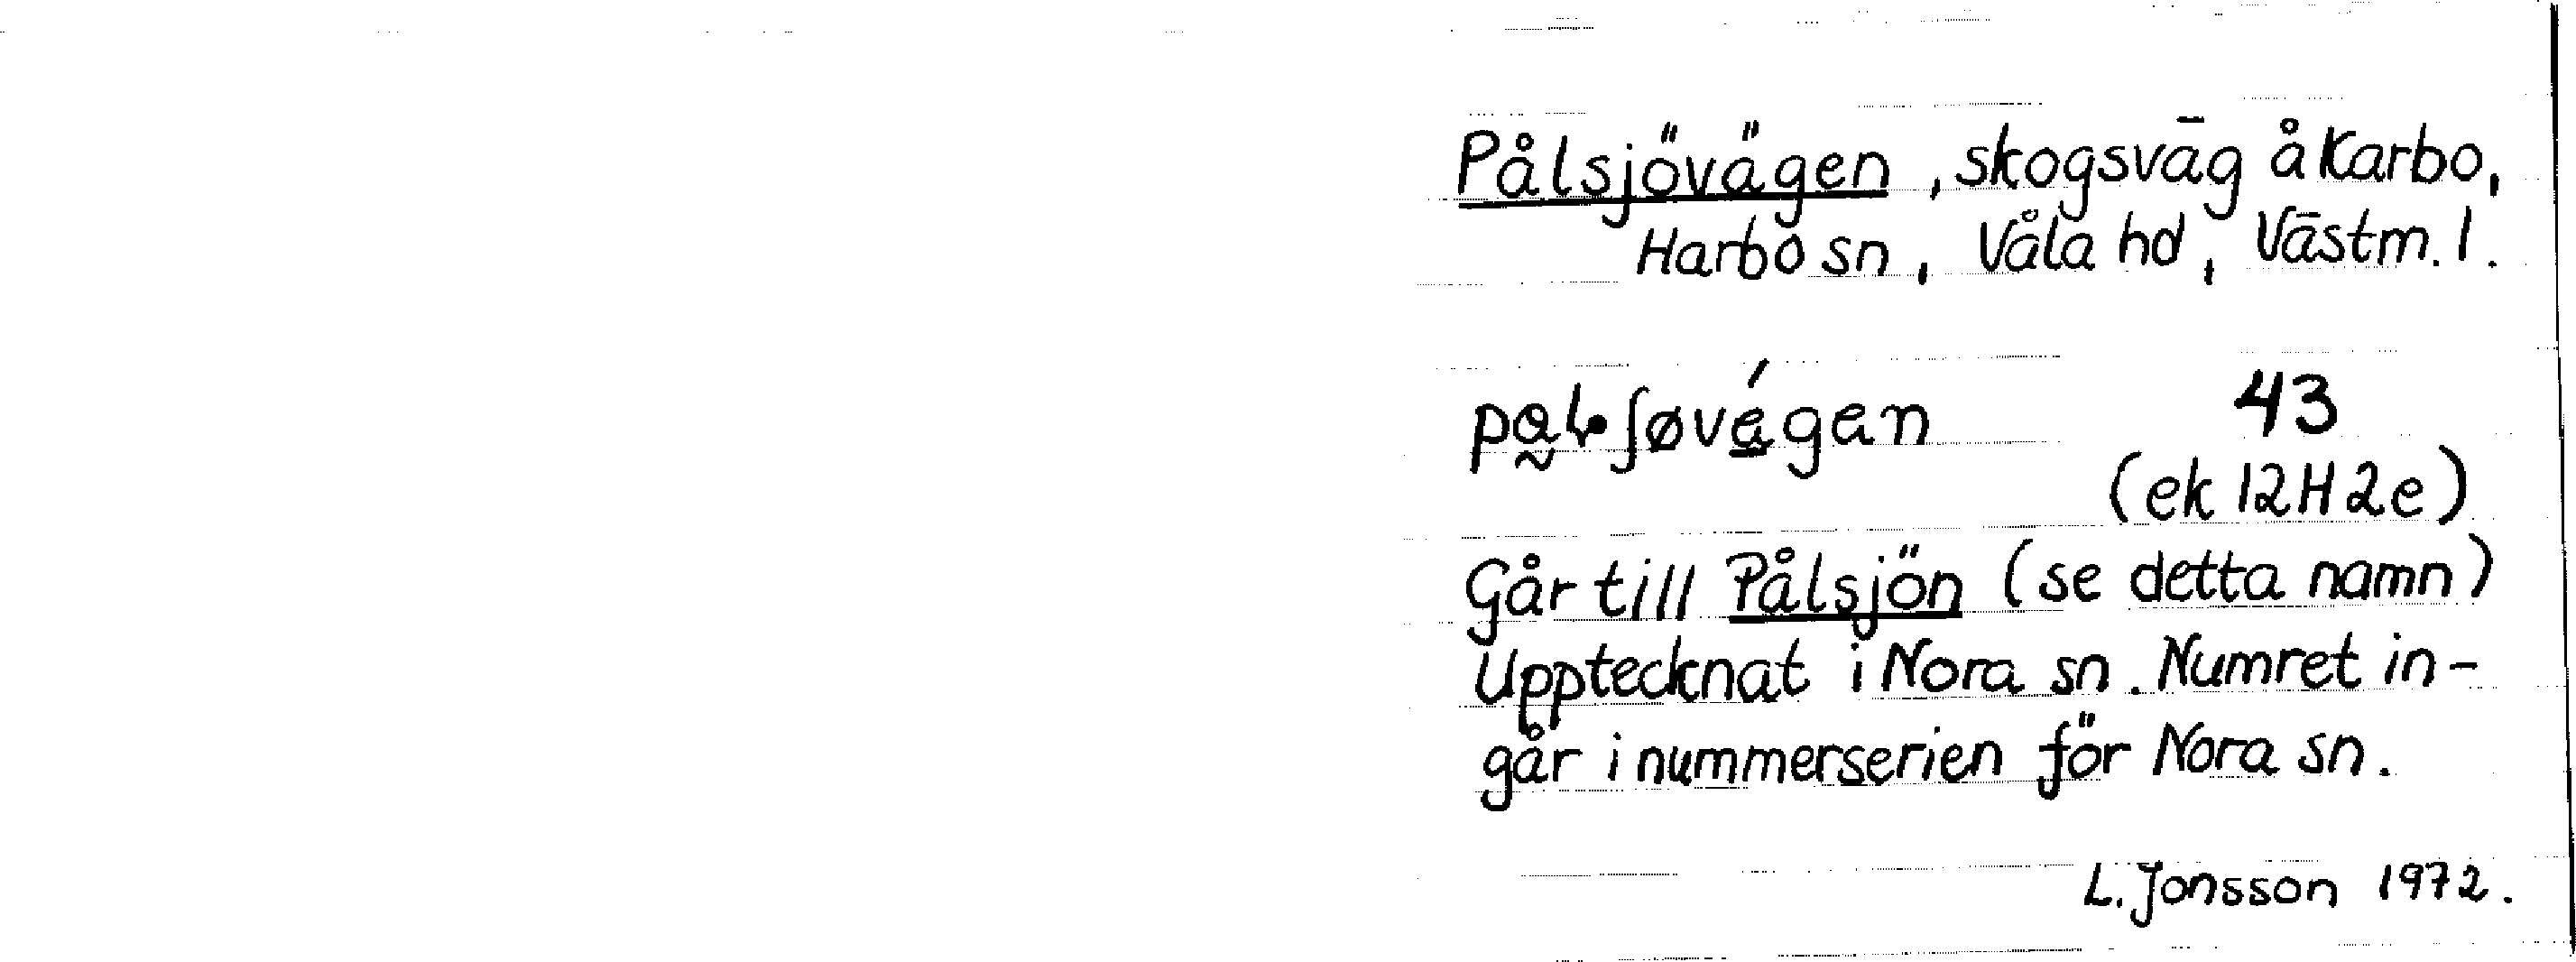 Pålsjövägen, skogsväg å Karbo,
Harbo sn, Våla hd, Västm. l.
43
(ek 12H2e)
Går till Pålsjön (se detta namn)
Upptecknat i Nora sn. Numret in-
går i nummerserien för Nora sn.
L. Jonsson 1972.